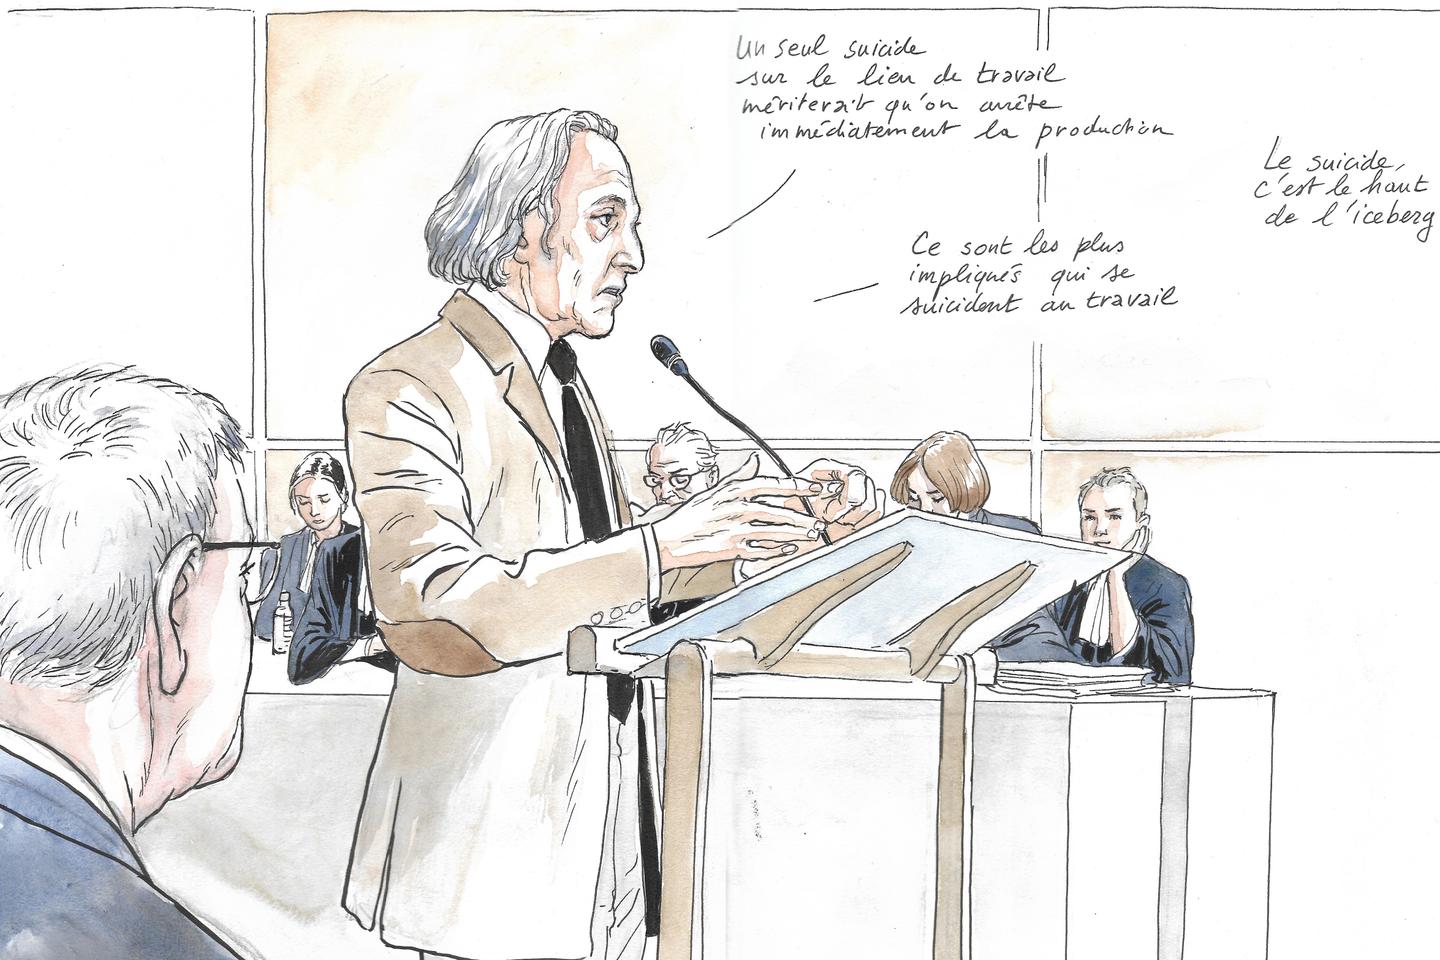 Un seul suicide
sur le lieu de travail
mériterait qu'on arrête
immédiatement la production
Le suicide,
c'est le haut
de l'iceberg
Ce sont les plus
impliqués qui se
suicident au travail